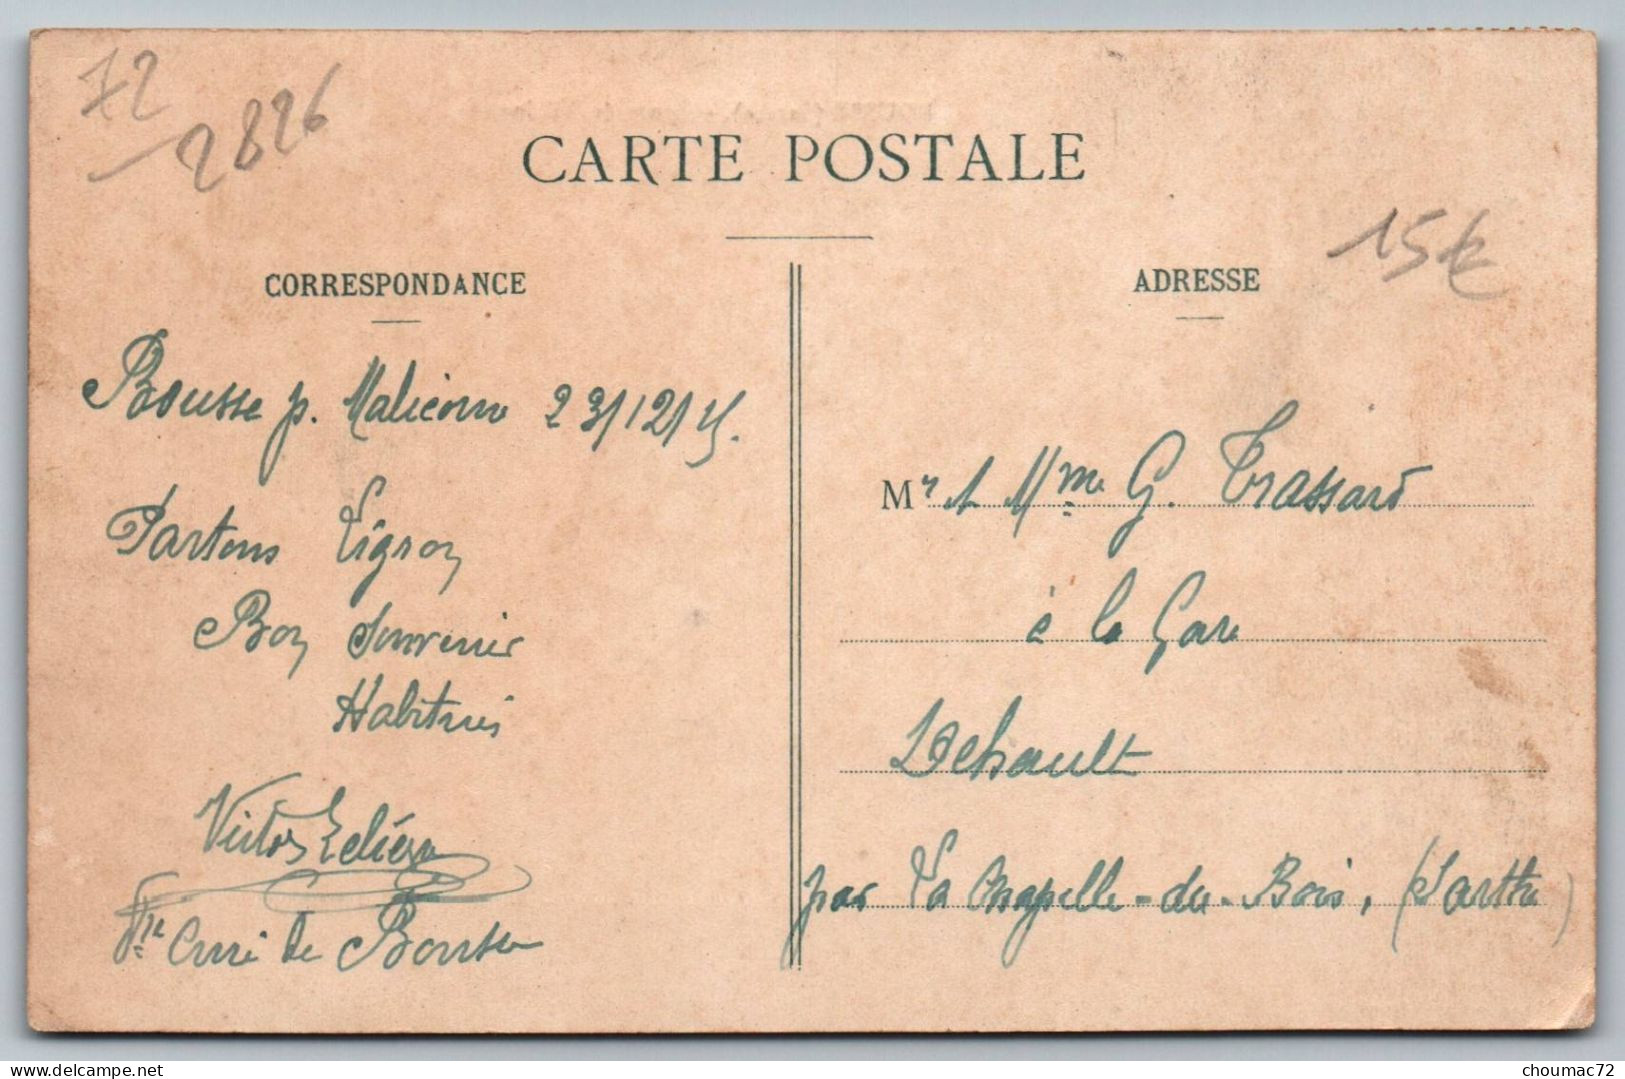 72
2826
CARTE POSTALE
CORRESPONDANCE
ADRESSE
15€
Bousse p. Malicorne 23/12/15.
Partons Vigroy
Bon Souvenir
Habituis
Victor
Curé de Bousse
Mr et Mme G. Trassard
à la Gare
Dehault
par La Chapelle-du-Bois, (Sarthe)
choumac72